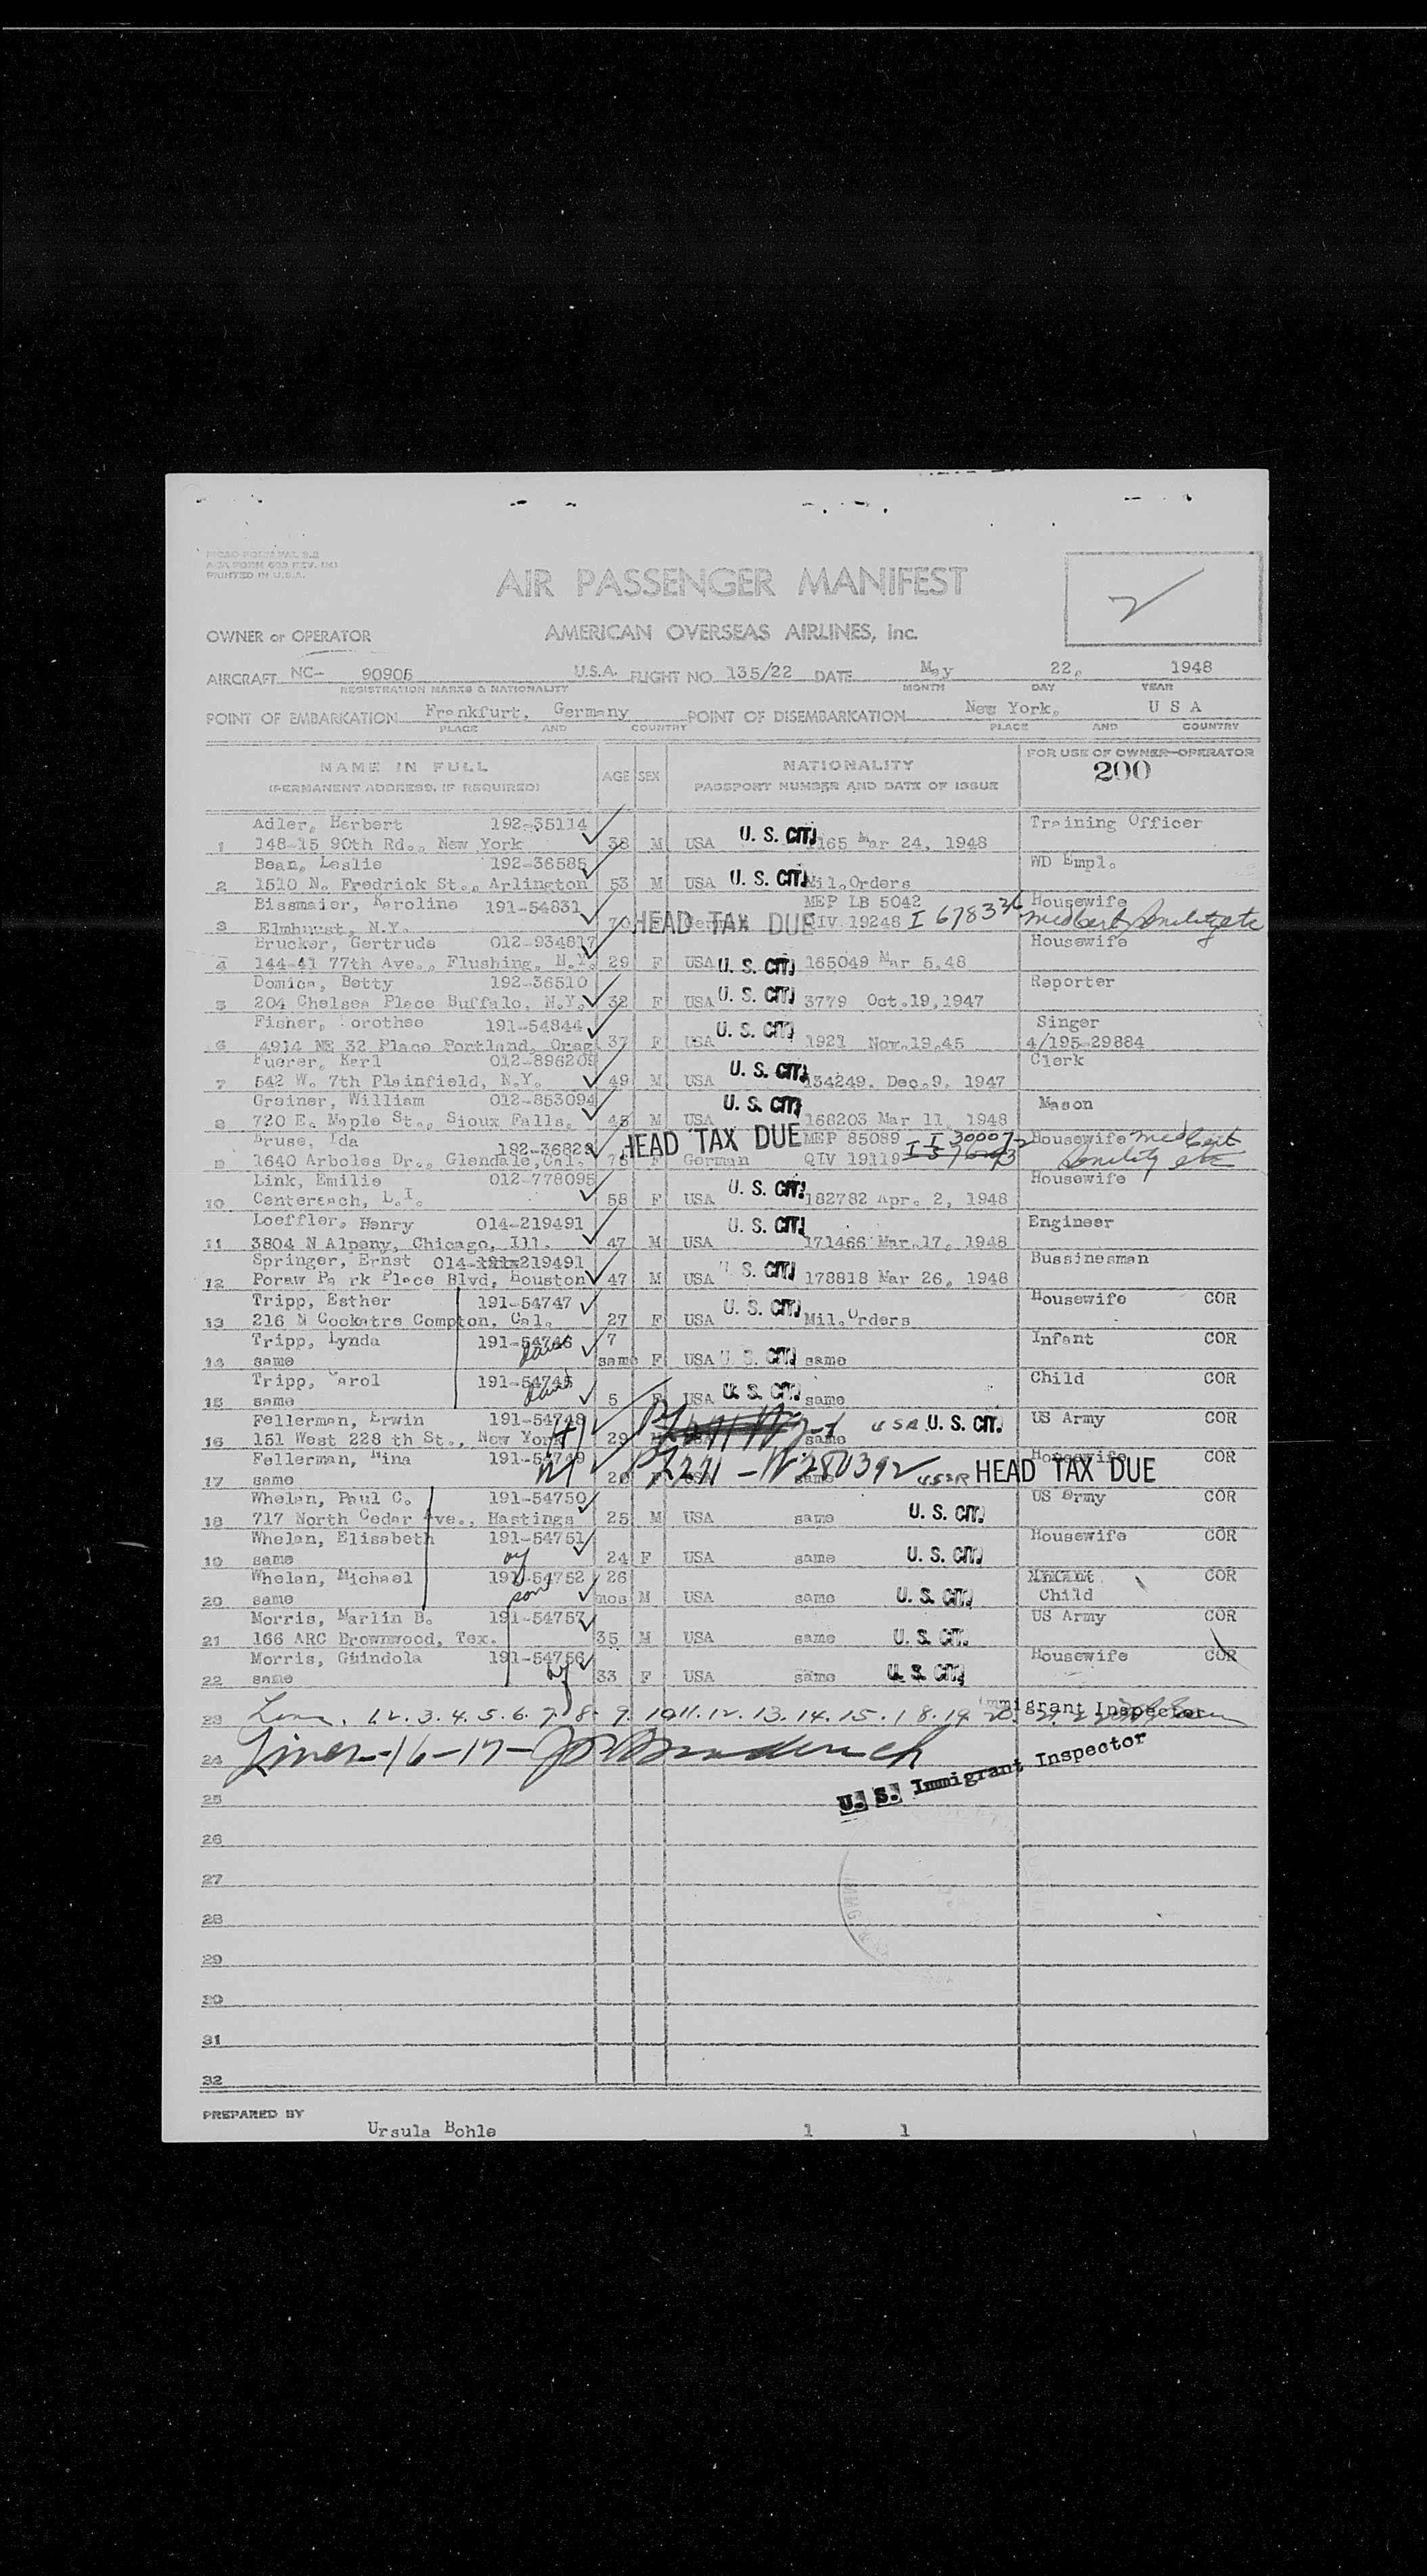 MCSO FORM PAL 9.2
AOA FORM 603 REV. (K)
PRINTED IN U.S.A.
AIR PASSENGER MANIFEST
OWNER or OPERATOR AMERICAN OVERSEAS AIRLINES, Inc.
AIRCRAFT NC- 90906 U.S.A. FLIGHT NO. 135/22 DATE May 22, 1948
REGISTRATION MARKS & NATIONALITY MONTH DAY YEAR
POINT OF EMBARKATION Frankfurt, Germany POINT OF DISEMBARKATION New York, U S A
PLACE AND COUNTRY PLACE AND COUNTRY
NAME IN FULL AGE SEX NATIONALITY FOR USE OF OWNER-OPERATOR
(PERMANENT ADDRESS, IF REQUIRED) PASSPORT NUMBER AND DATE OF ISSUE 200
Adler, Herbert 192-35114 Training Officer
1 148-15 90th Rd., New York 38 M USA U. S. CIT. 1165 Mar 24, 1948
Bean, Leslie 192-36585 WD Empl.
2 1510 N. Fredrick St., Arlington 53 M USA U. S. CIT. Mil.Orders
Bissmaier, Karoline 191-54831 MEP LB 5042 Housewife
3 Elmhurst, N.Y. 70 HEAD TAX DUE QIV 19248 I 678336 med cert Senility etc
Brucker, Gertrude 012-934817 Housewife
4 144-41 77th Ave., Flushing, N.Y. 29 F USA U. S. CIT. 165049 Mar 5,48
Domica, Betty 192-36510 Reporter
5 204 Chelsea Place Buffalo, N.Y. 32 F USA U. S. CIT. 3779 Oct.19,1947
Fisher, Dorothee 191-54844 Singer
6 4914 NE 32 Place Portland, Oreg 37 F USA U. S. CIT. 1921 Nov.19,45 4/195-29884
Fuerer, Karl 012-896209 Clerk
7 542 W. 7th Plainfield, N.Y. 49 M USA U. S. CIT. 134249. Dec.9, 1947
Greiner, William 012-853094 Mason
8 720 E. Maple St., Sioux Falls, 48 M USA U. S. CIT. 168203 Mar 11, 1948
Kruse, Ida 192-36829 HEAD TAX DUE MEP 85089 I 300072 Housewife med cert
9 1640 Arboles Dr., Glendale,Cal. 75 F German QIV 19119 senility etc
Link, Emilie 012-778095 Housewife
10 Centereach, L.I. 58 F USA U. S. CIT. 182782 Apr. 2, 1948
Loeffler, Henry 014-219491 Engineer
11 3804 N Alpany, Chicago, Ill. 47 M USA U. S. CIT. 171466 Mar.17, 1948
Springer, Ernst 014-219491 Bussinesman
12 Poraw Pa rk Place Blvd, Houston 47 M USA U. S. CIT. 178818 Mar 26, 1948
Tripp, Esther 191-54747 Housewife COR
13 216 N Cookatre Compton, Cal. 27 F USA U. S. CIT. Mil.Orders
Tripp, Lynda 191-54746 7 Infant COR
14 same same F USA U. S. CIT. same
Tripp, Carol 191-54745 Child COR
15 same 5 F USA U. S. CIT. same
Fellerman, Erwin 191-54748 US Army COR
16 151 West 228 th St., New York 29 M USA same USA U. S. CIT.
Fellerman, Mina 191-54749 Housewife COR
17 same 20 F USA same HEAD TAX DUE
Whelan, Paul C. 191-54750 US Army COR
18 717 North Cedar Ave., Hastings 25 M USA same U. S. CIT.
Whelan, Elisabeth 191-54751 Housewife COR
19 same 24 F USA same U. S. CIT.
Whelan, Michael 191-54752 26 COR
20 same son mos M USA same U. S. CIT. Child
Morris, Marlin B. 191-54757 US Army COR
21 166 ARC Brownwood, Tex. 35 M USA same U. S. CIT.
Morris, Guindola 191-54756 Housewife COR
22 same 33 F USA same U. S. CIT.
23 1. 2. 3. 4. 5. 6. 7. 8. 9. 10. 11. 12. 13. 14. 15. 18. 19. 20. Immigrant Inspector
24 Lines-16-17-
U. S. Immigrant Inspector
25
26
27
28
29
30
31
32
PREPARED BY
Ursula Bohle 1 1